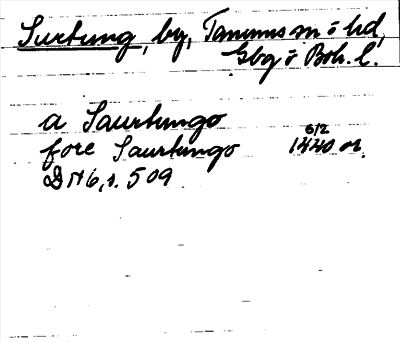 Surtung, by, Tanums sn o hd,
Gbg o Boh. l.
a Saurtungo
fore Saurtungo 6/2 1440 or.
DN 6, s. 509